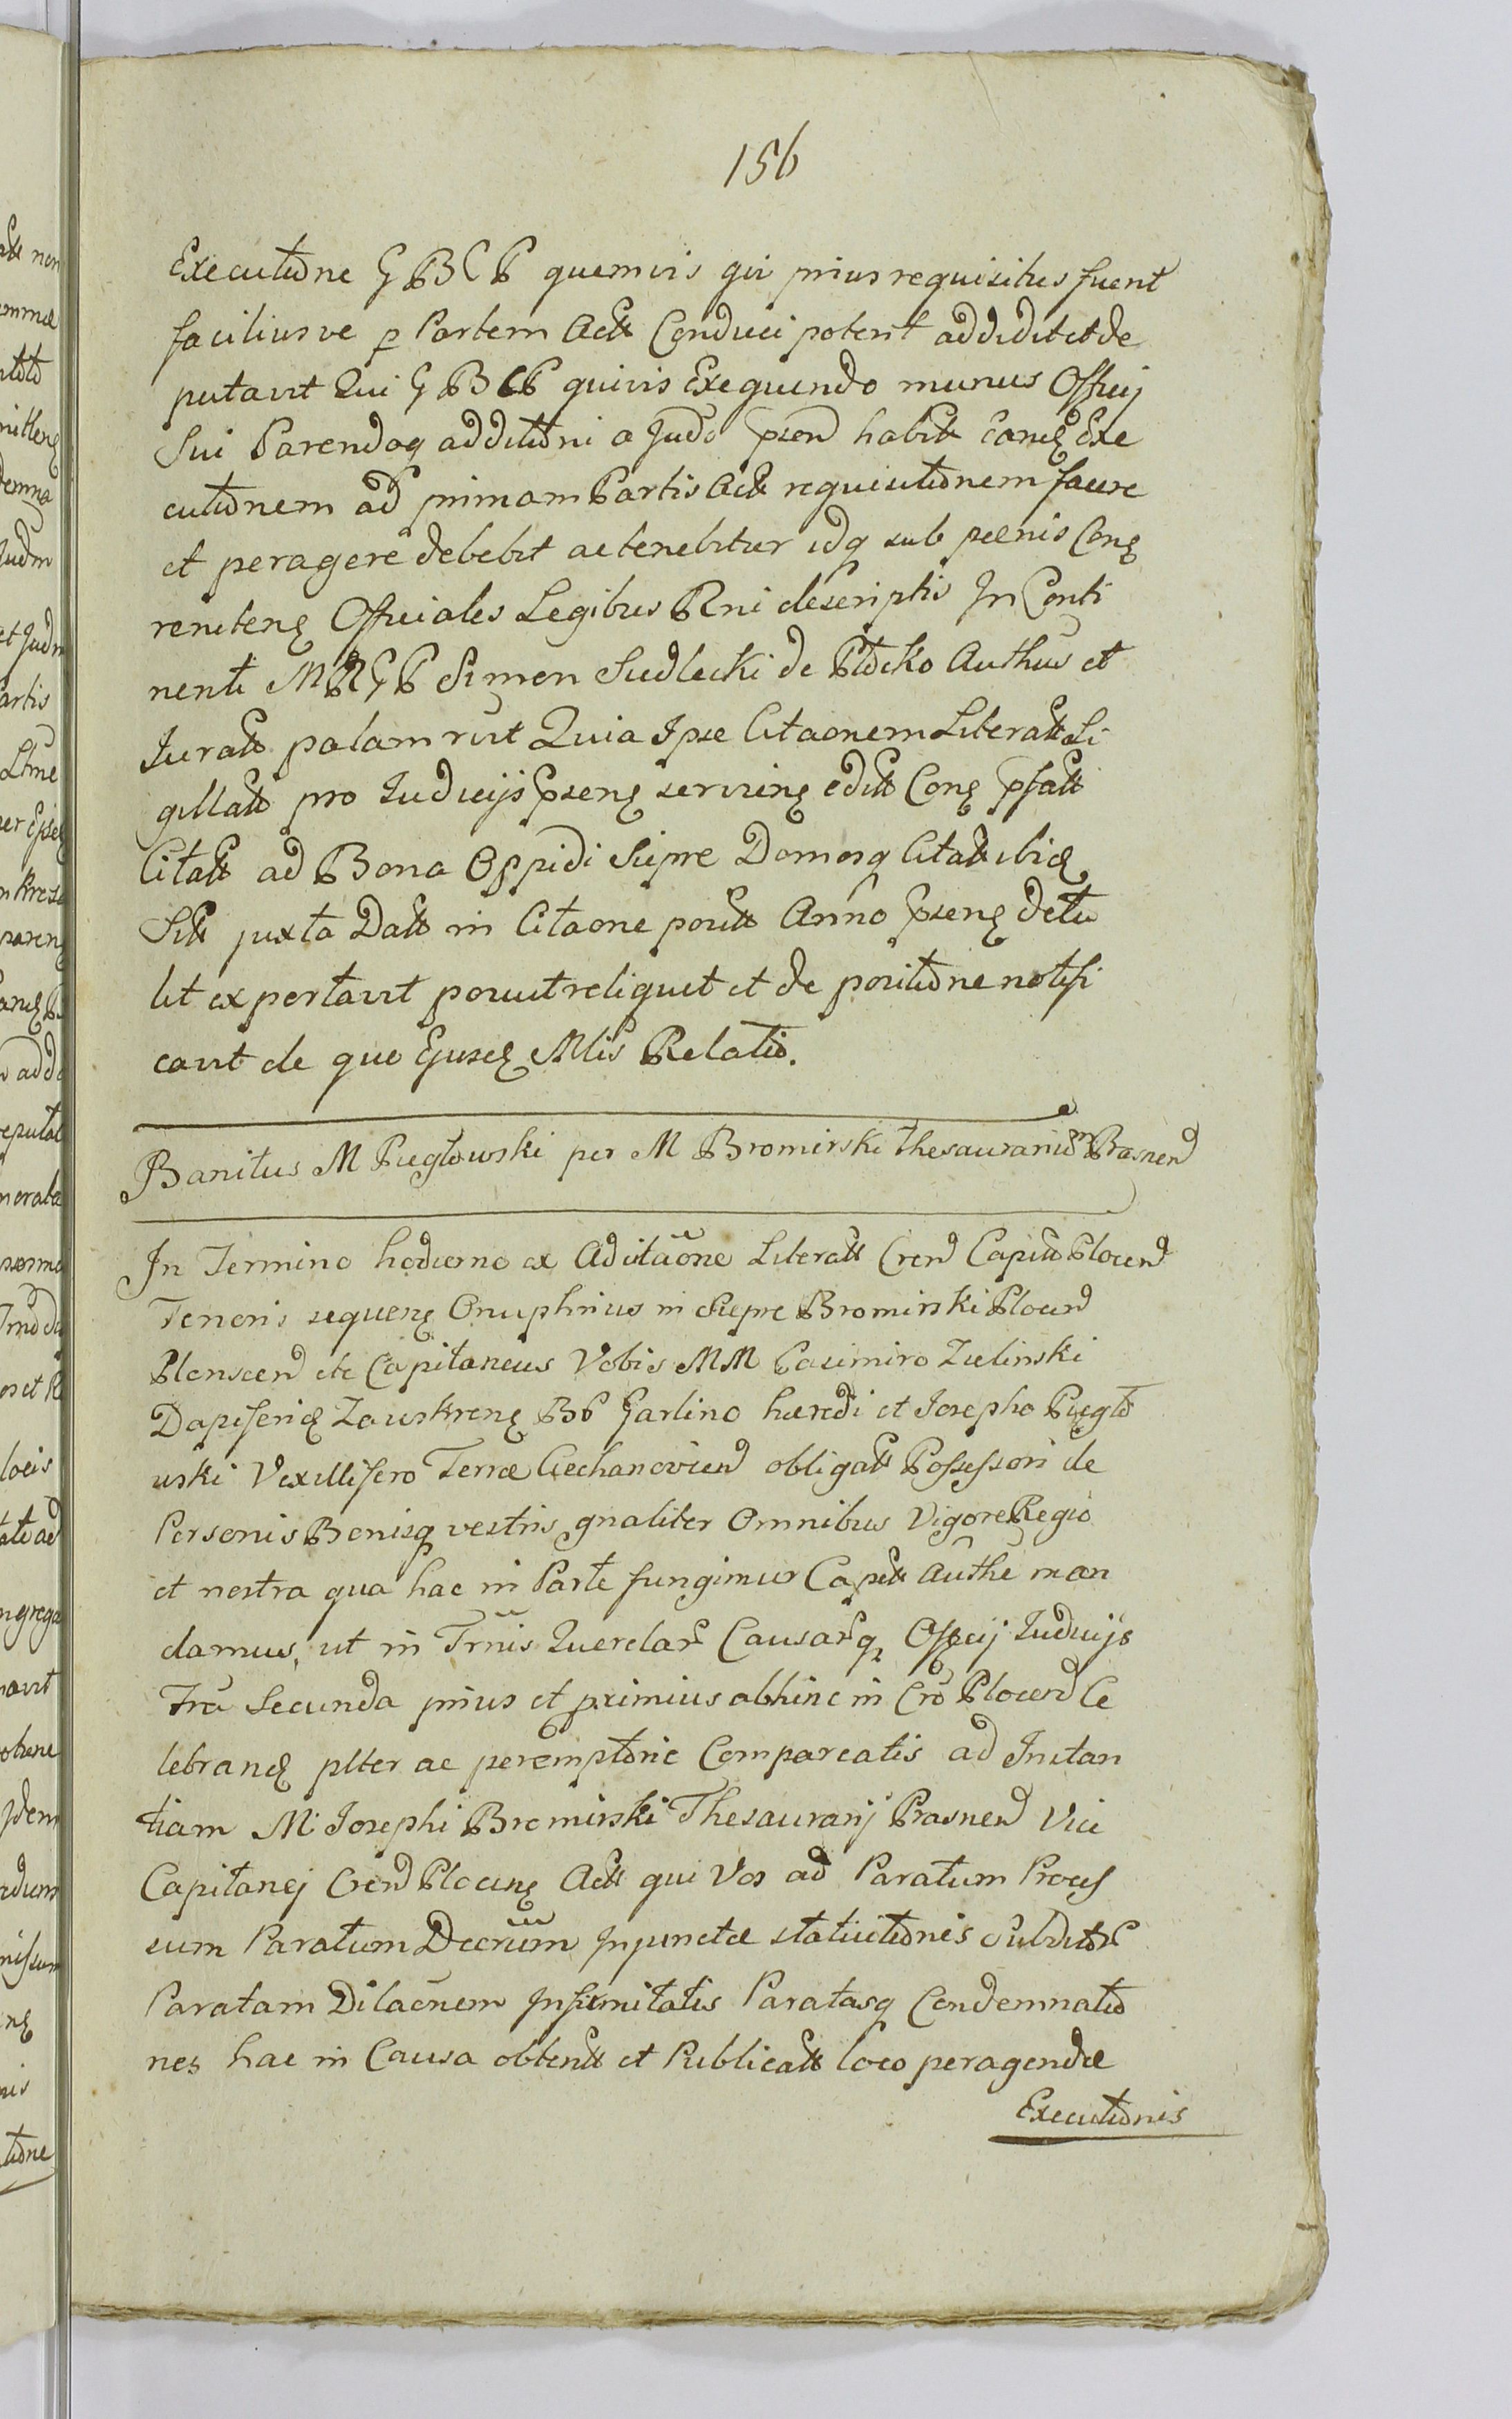 156
Executione G B C P quemvis qui prius requisitus fuerit
faciliusve p Partem Act Conduci poterit addidit et de
putavit Qui G B C P quivis Exequendo munus Officij
Sui Parendoq additioni a Judo psen habit eandem Exe
cutionem ad primam Partis Act requisitionem facere
et peragere debebit ac tenebitur idq sub pœnis Con
reniten Officiales Legibus Rni descriptis In Conti
nenti M R G P Simon Siedlecki de Płocko Authus et
Jurat palam rvit Quia Ipse Citaonem Literat Si
gillat pro Judicijs psen servien edit Con psat
Citat ad Bona Oppidi Sierpc Domosq Citat ibid
Sit juxta Dat in Citaone posit Anno psen detu
lit exportavit posuit reliquit et de positione notifi
cavit de quo Ejusd Mlis Relatio.
Banitus M Piegłowski per M Bromirski Thesaurarium Prasnen
In Termino hodierno ex Adcitaone Literat Cren Capit Plocen
Tenoris sequen Onuphrius in Sierpc Bromirski Plocen
Plonscen etc Capitaneus Vobis MM Casimiro Zielinski
Dapiferid Zawskren BB Garlino hæredi et Josepho Piegło
wski Vexillifero Terræ Ciechanovien obligat Possessori de
Personis Bonisq vestris gnaliter Omnibus Vigore Regio
et nostra qua hac in Parte fungimur Capit Authe man
damus, ut in Trnis Querelar Causarq Officij Judicijs
Fra Secunda prius et proximius abhinc in Cro Plocen Ce
lebrand plter ac peremptorie Compareatis ad Instan
tiam M Josephi Bromirski Thesaurarij Prasnen Vice
Capitanej Cren Plocen Act qui Vos ad Paratum Proces
sum Paratum Decrum Injunctæ statuitionis Subditor
Paratam Dilaonem Infirmitatis Paratasq Condemnatio
nes hac in Causa obtent et Publicat loco peragendæ
Executionis